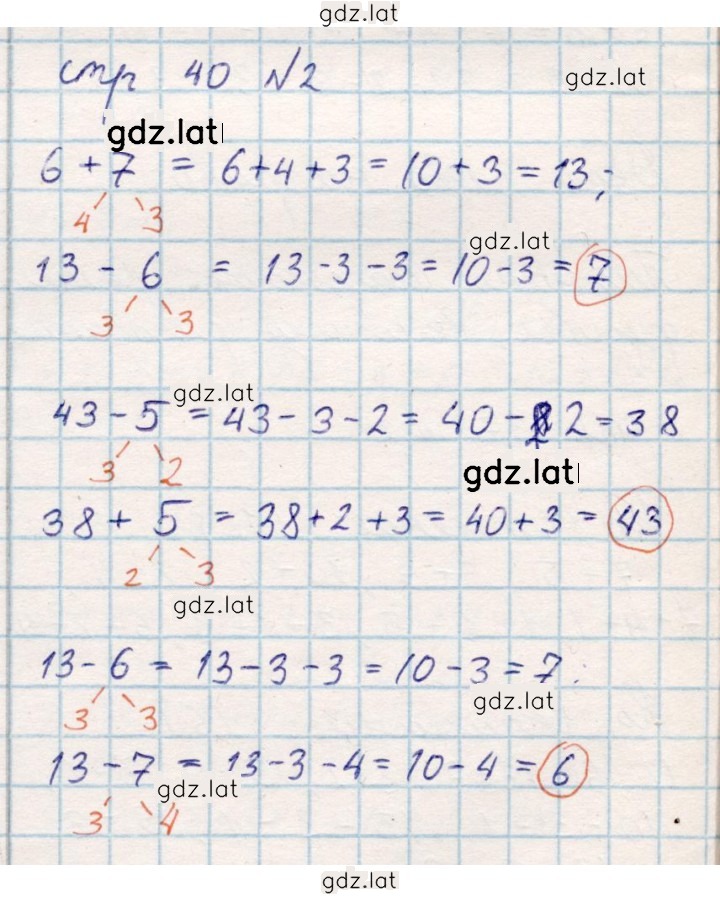 gdz.lat
стр 40 №2
gdz.lat
gdz.lat
6 + 7 = 6+4+3 = 10+3 = 13;
4 3
gdz.lat
13 - 6 = 13-3-3 = 10-3 = 7
3 3
gdz.lat
43 - 5 = 43-3-2 = 40-2 = 38
3 2
gdz.lat
38 + 5 = 38+2+3 = 40+3 = 43
2 3
gdz.lat
13-6 = 13-3-3 = 10-3 = 7;
3 3
gdz.lat
13-7 = 13-3-4 = 10-4 = 6
gdz.lat
3 4
gdz.lat